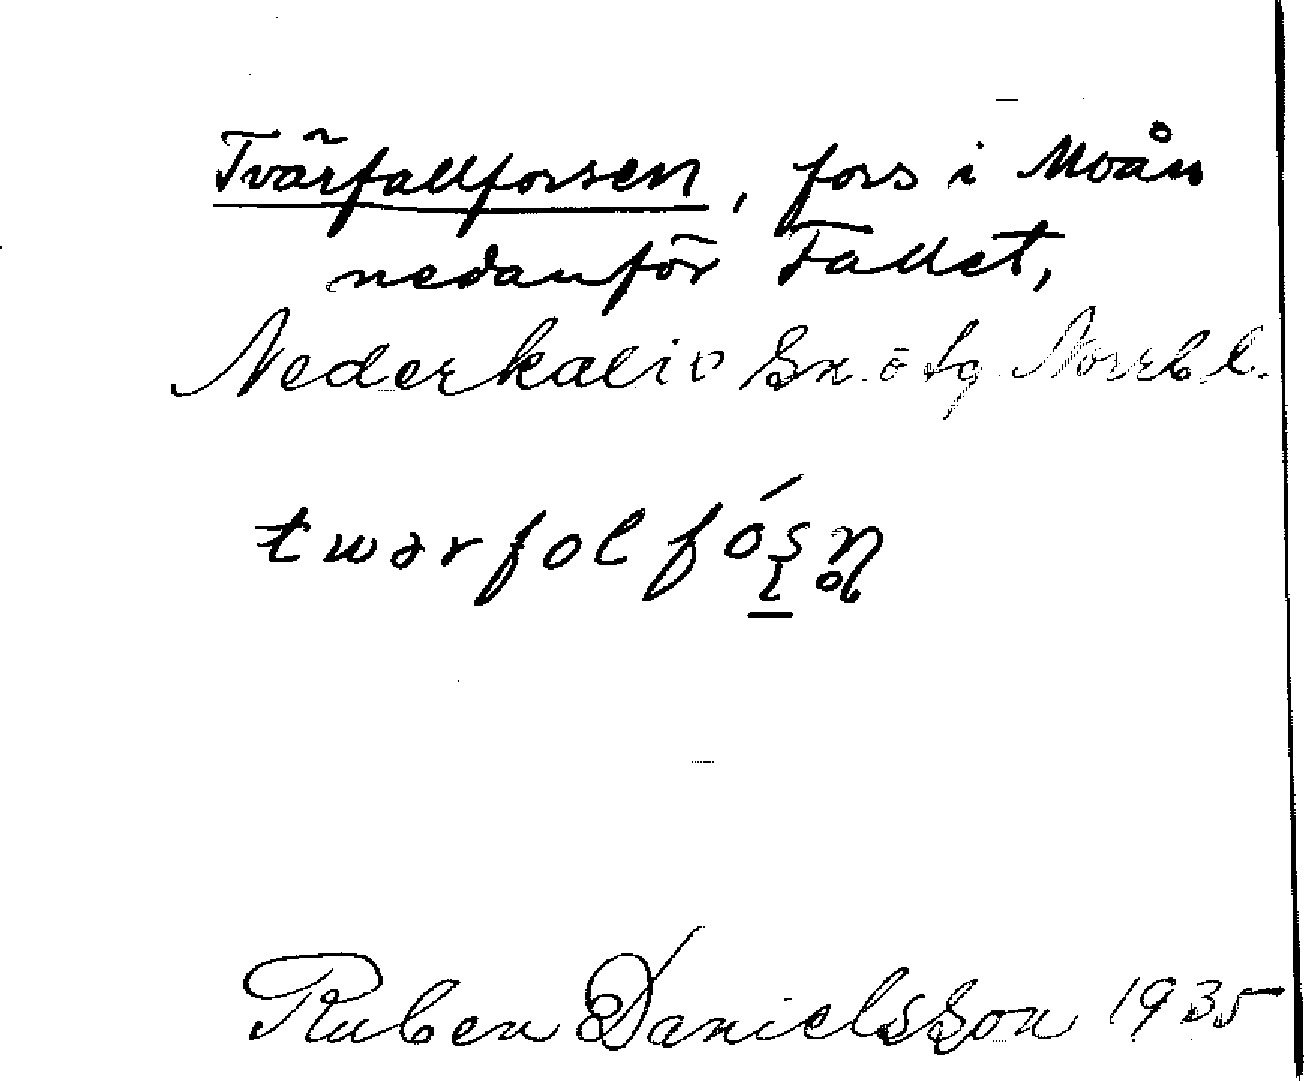 Tvärfallforsen, fors i Moån
nedanför Fallet,
Nederkalix Sn. o tg Norrb l.
twərfolfós̩n̥
Ruben Danielsson 1935